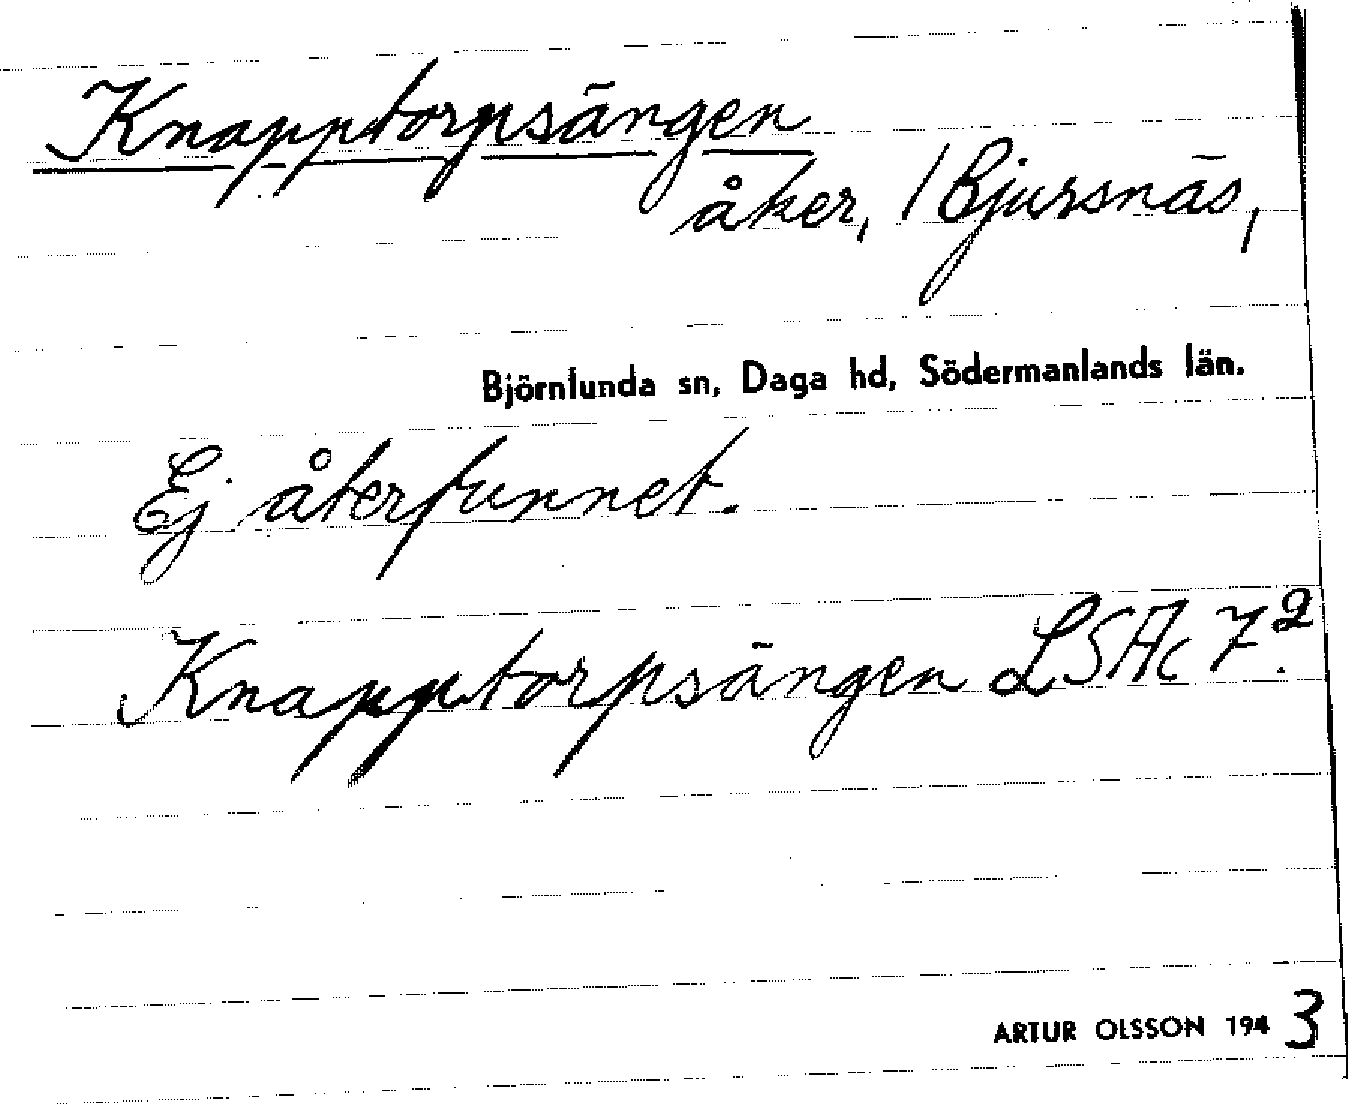 Knapptorpsängen
åker, / Bjursnäs,
Björnlunda sn, Daga hd, Södermanlands län.
Ej återfunnet.
Knapptorpsängen LSAc 7².
ARTUR OLSSON 1943